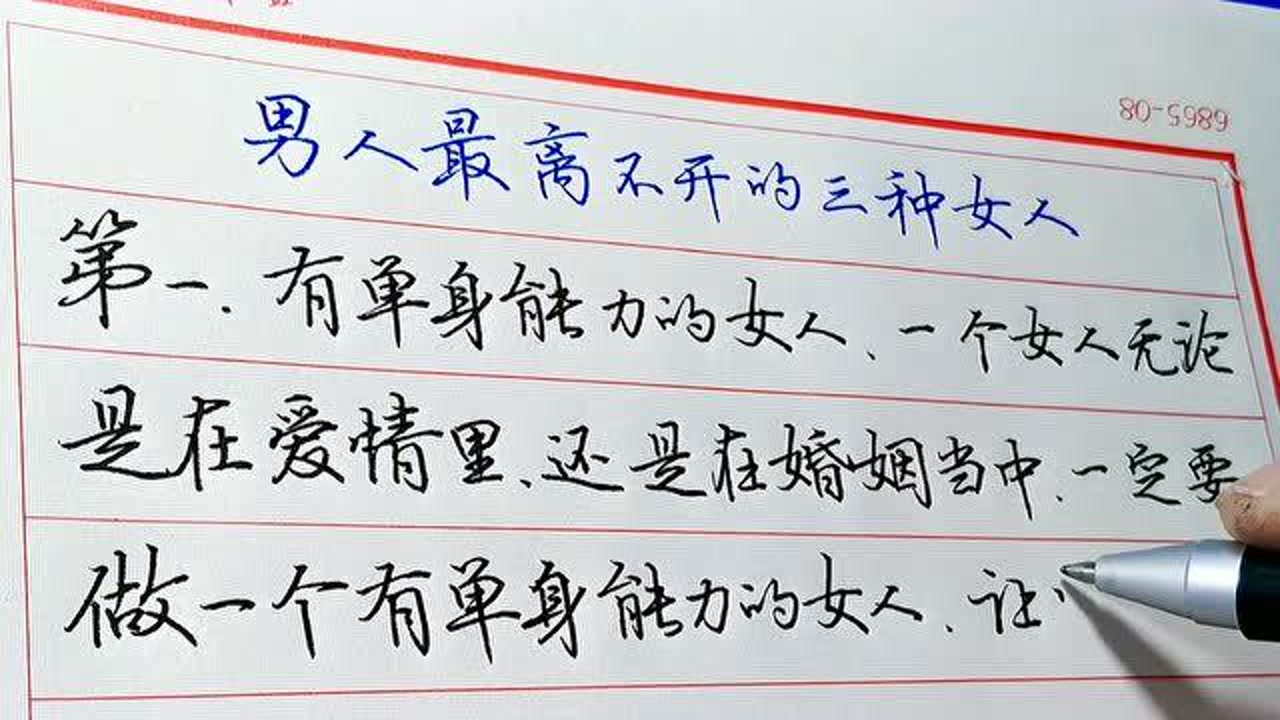 80-5989
男人最离不开的三种女人
第一、有单身能力的女人、一个女人无论
是在爱情里、还是在婚姻当中、一定要
做一个有单身能力的女人、让